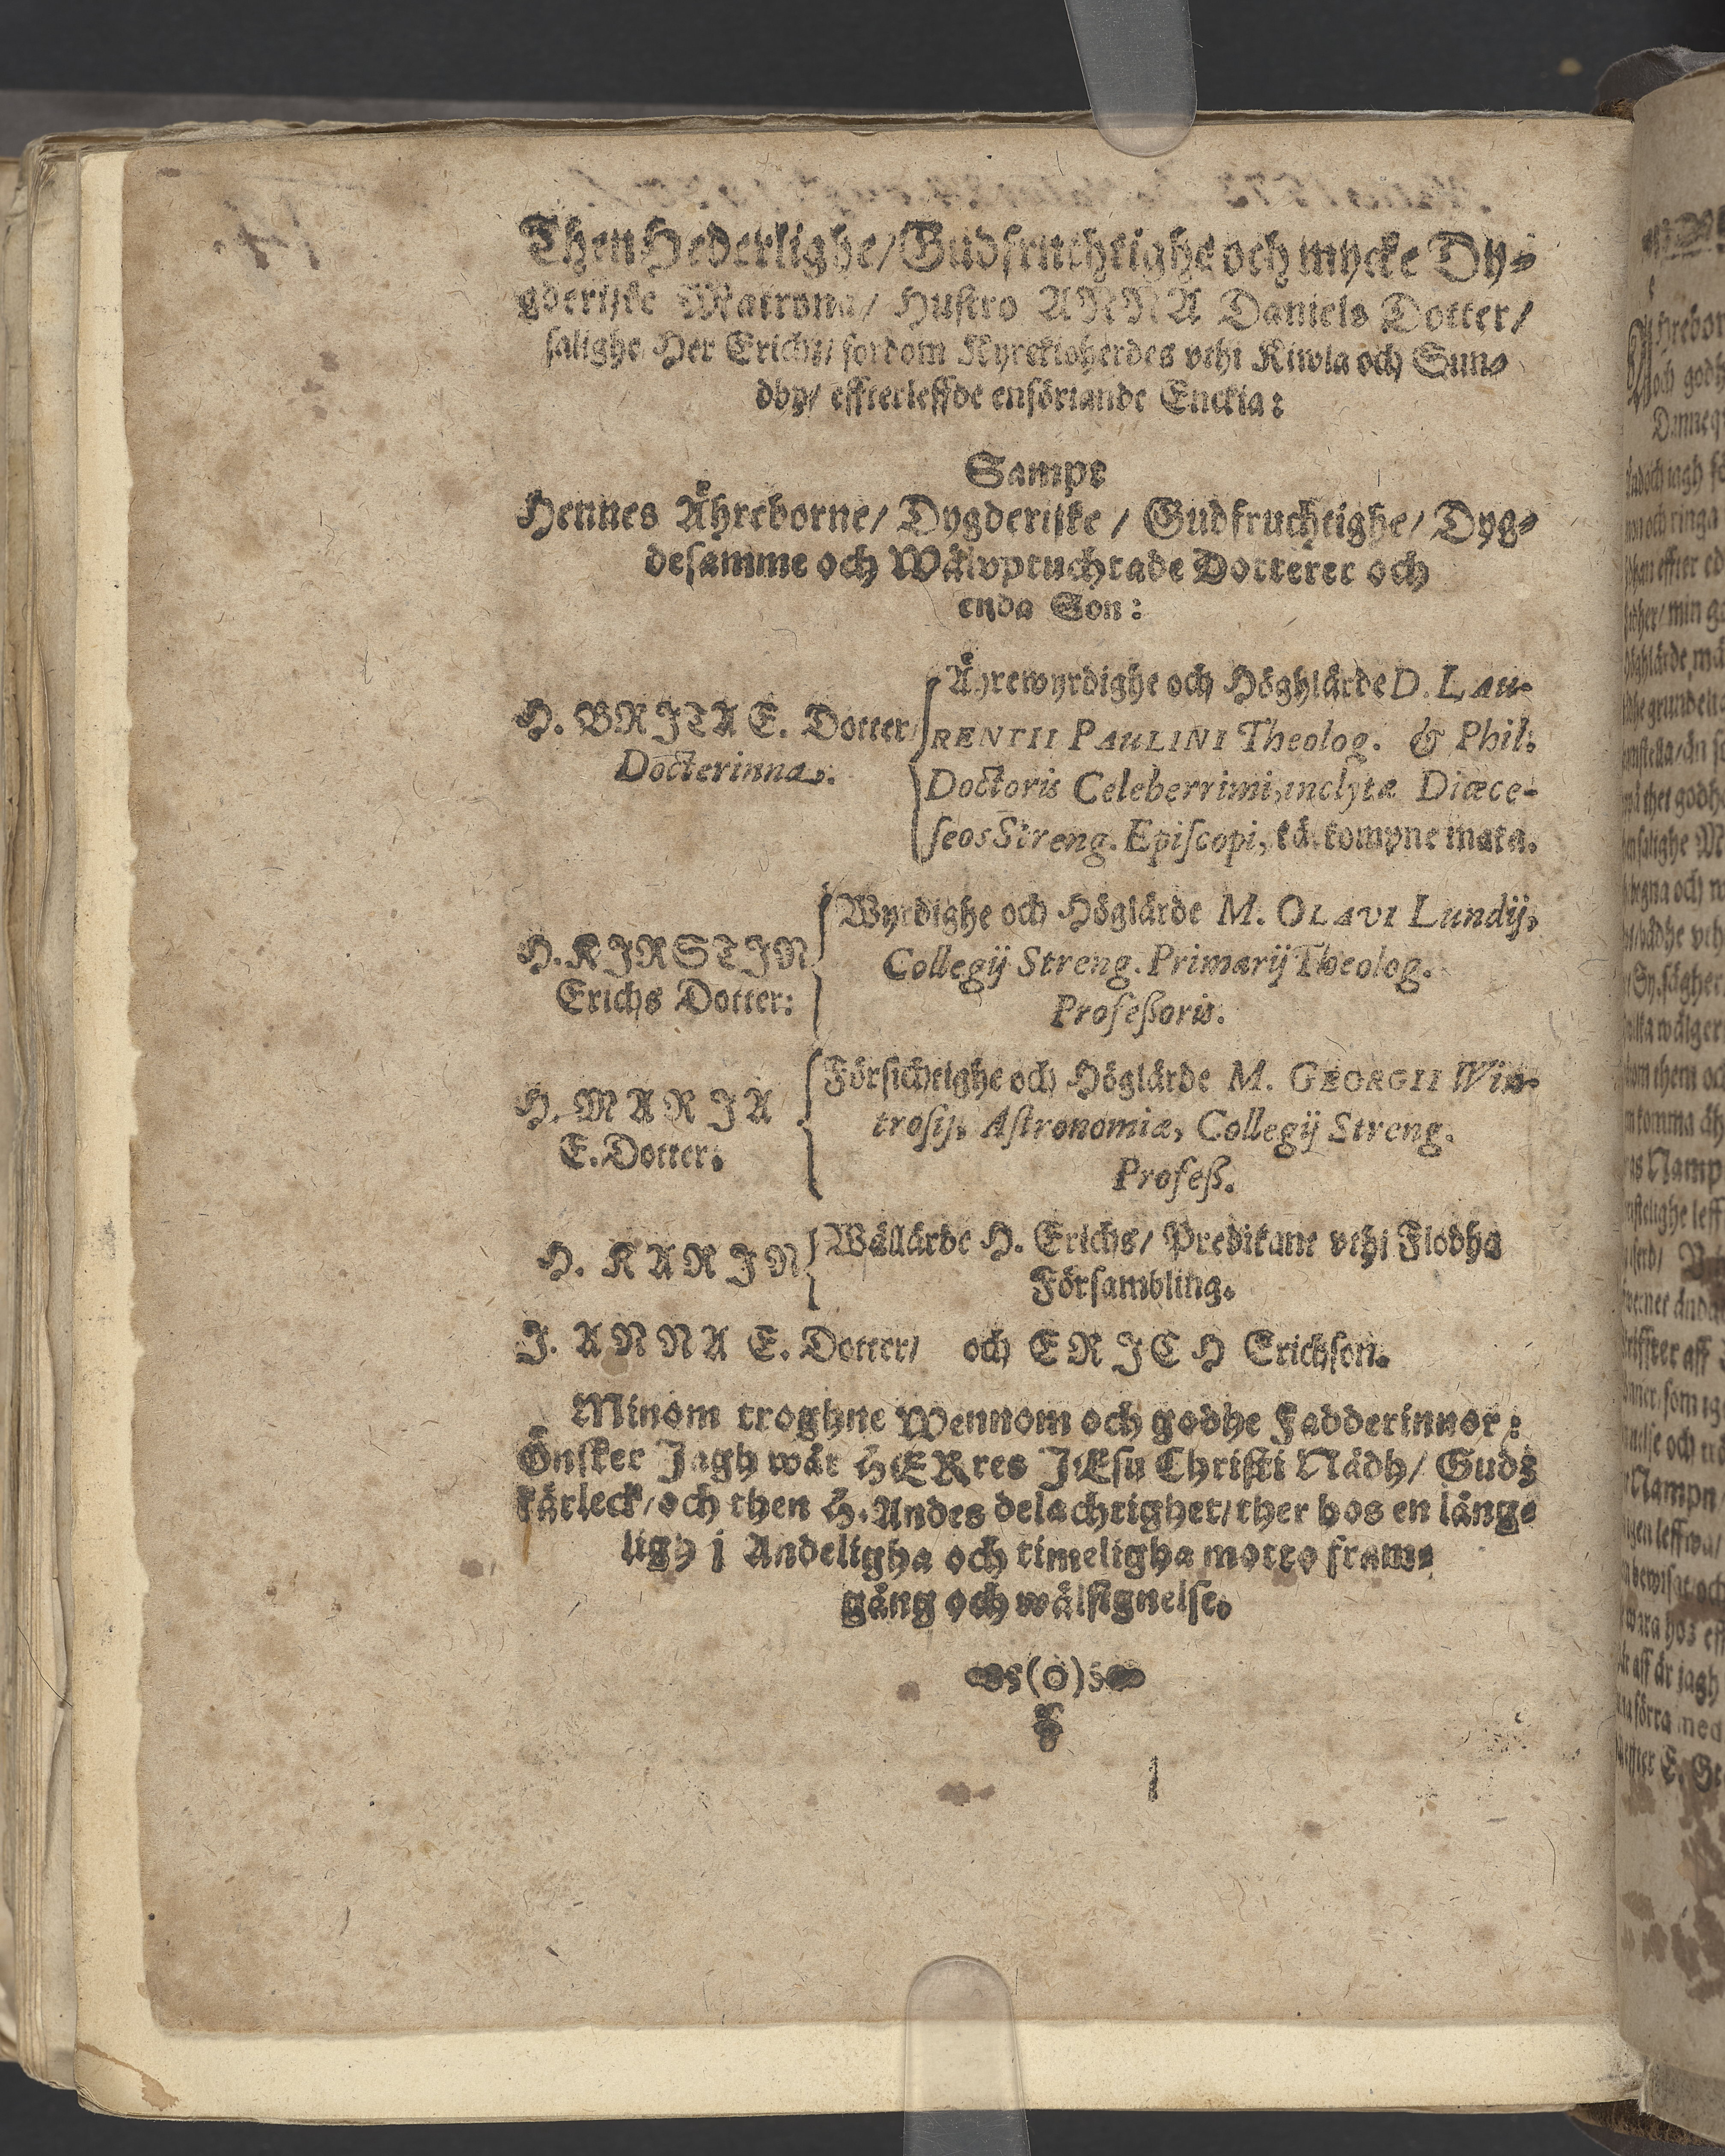 Then Hederlighe/ Gudfruchtighe och mycke Dy-
gderijke Matrona/ Hustro ANNA Daniels Dotter/
salighe Her Erichs/ fordom Kyrckioherdes vthi Kiwla och Sun-
dby/ effterleffde ensöriande Enckia:
Sampt
Hennes Åhreborne/ Dygderijke / Gudfruchtighe/ Dyg-
desamme och Wälvptuchtade Dotterer och
enda Son:
H. BRITA E. Dotter/
Docterinna.
Åhrewyrdighe och Höghlärde D. LAU-
RENTII PAULINI Theolog. & Phil:
Doctoris Celeberrimi, inclytæ Diœce-
seos Streng. Episcopi, kä. kompne maka.
H. KIRSTIN
Erichs Dotter:
Wyrdighe och Höglärde M. OLAVI Lundij,
Collegij Streng. Primarij Theolog.
Profeßoris.
H. MARIA
E. Dotter.
Försichtighe och Höglärde M. GEORGII Win-
trosij, Astronomiæ, Collegij Streng.
Profeß.
H. KARIN
Wällärde H. Erichs/ Predikant vthi Flodha
Försambling.
J. ANNA E. Dotter/ och ERICH Erichson.
Minom troghne Wennom och godhe Fadderinnor:
Önsker Jagh wår HERres JEsu Christi Nådh/ Gudz
kärleck/ och then H. Andes delachtighet/ ther hos en lång-
ligh j Andeligha och timeligha motto fram-
gång och wälsignelse.
(o)